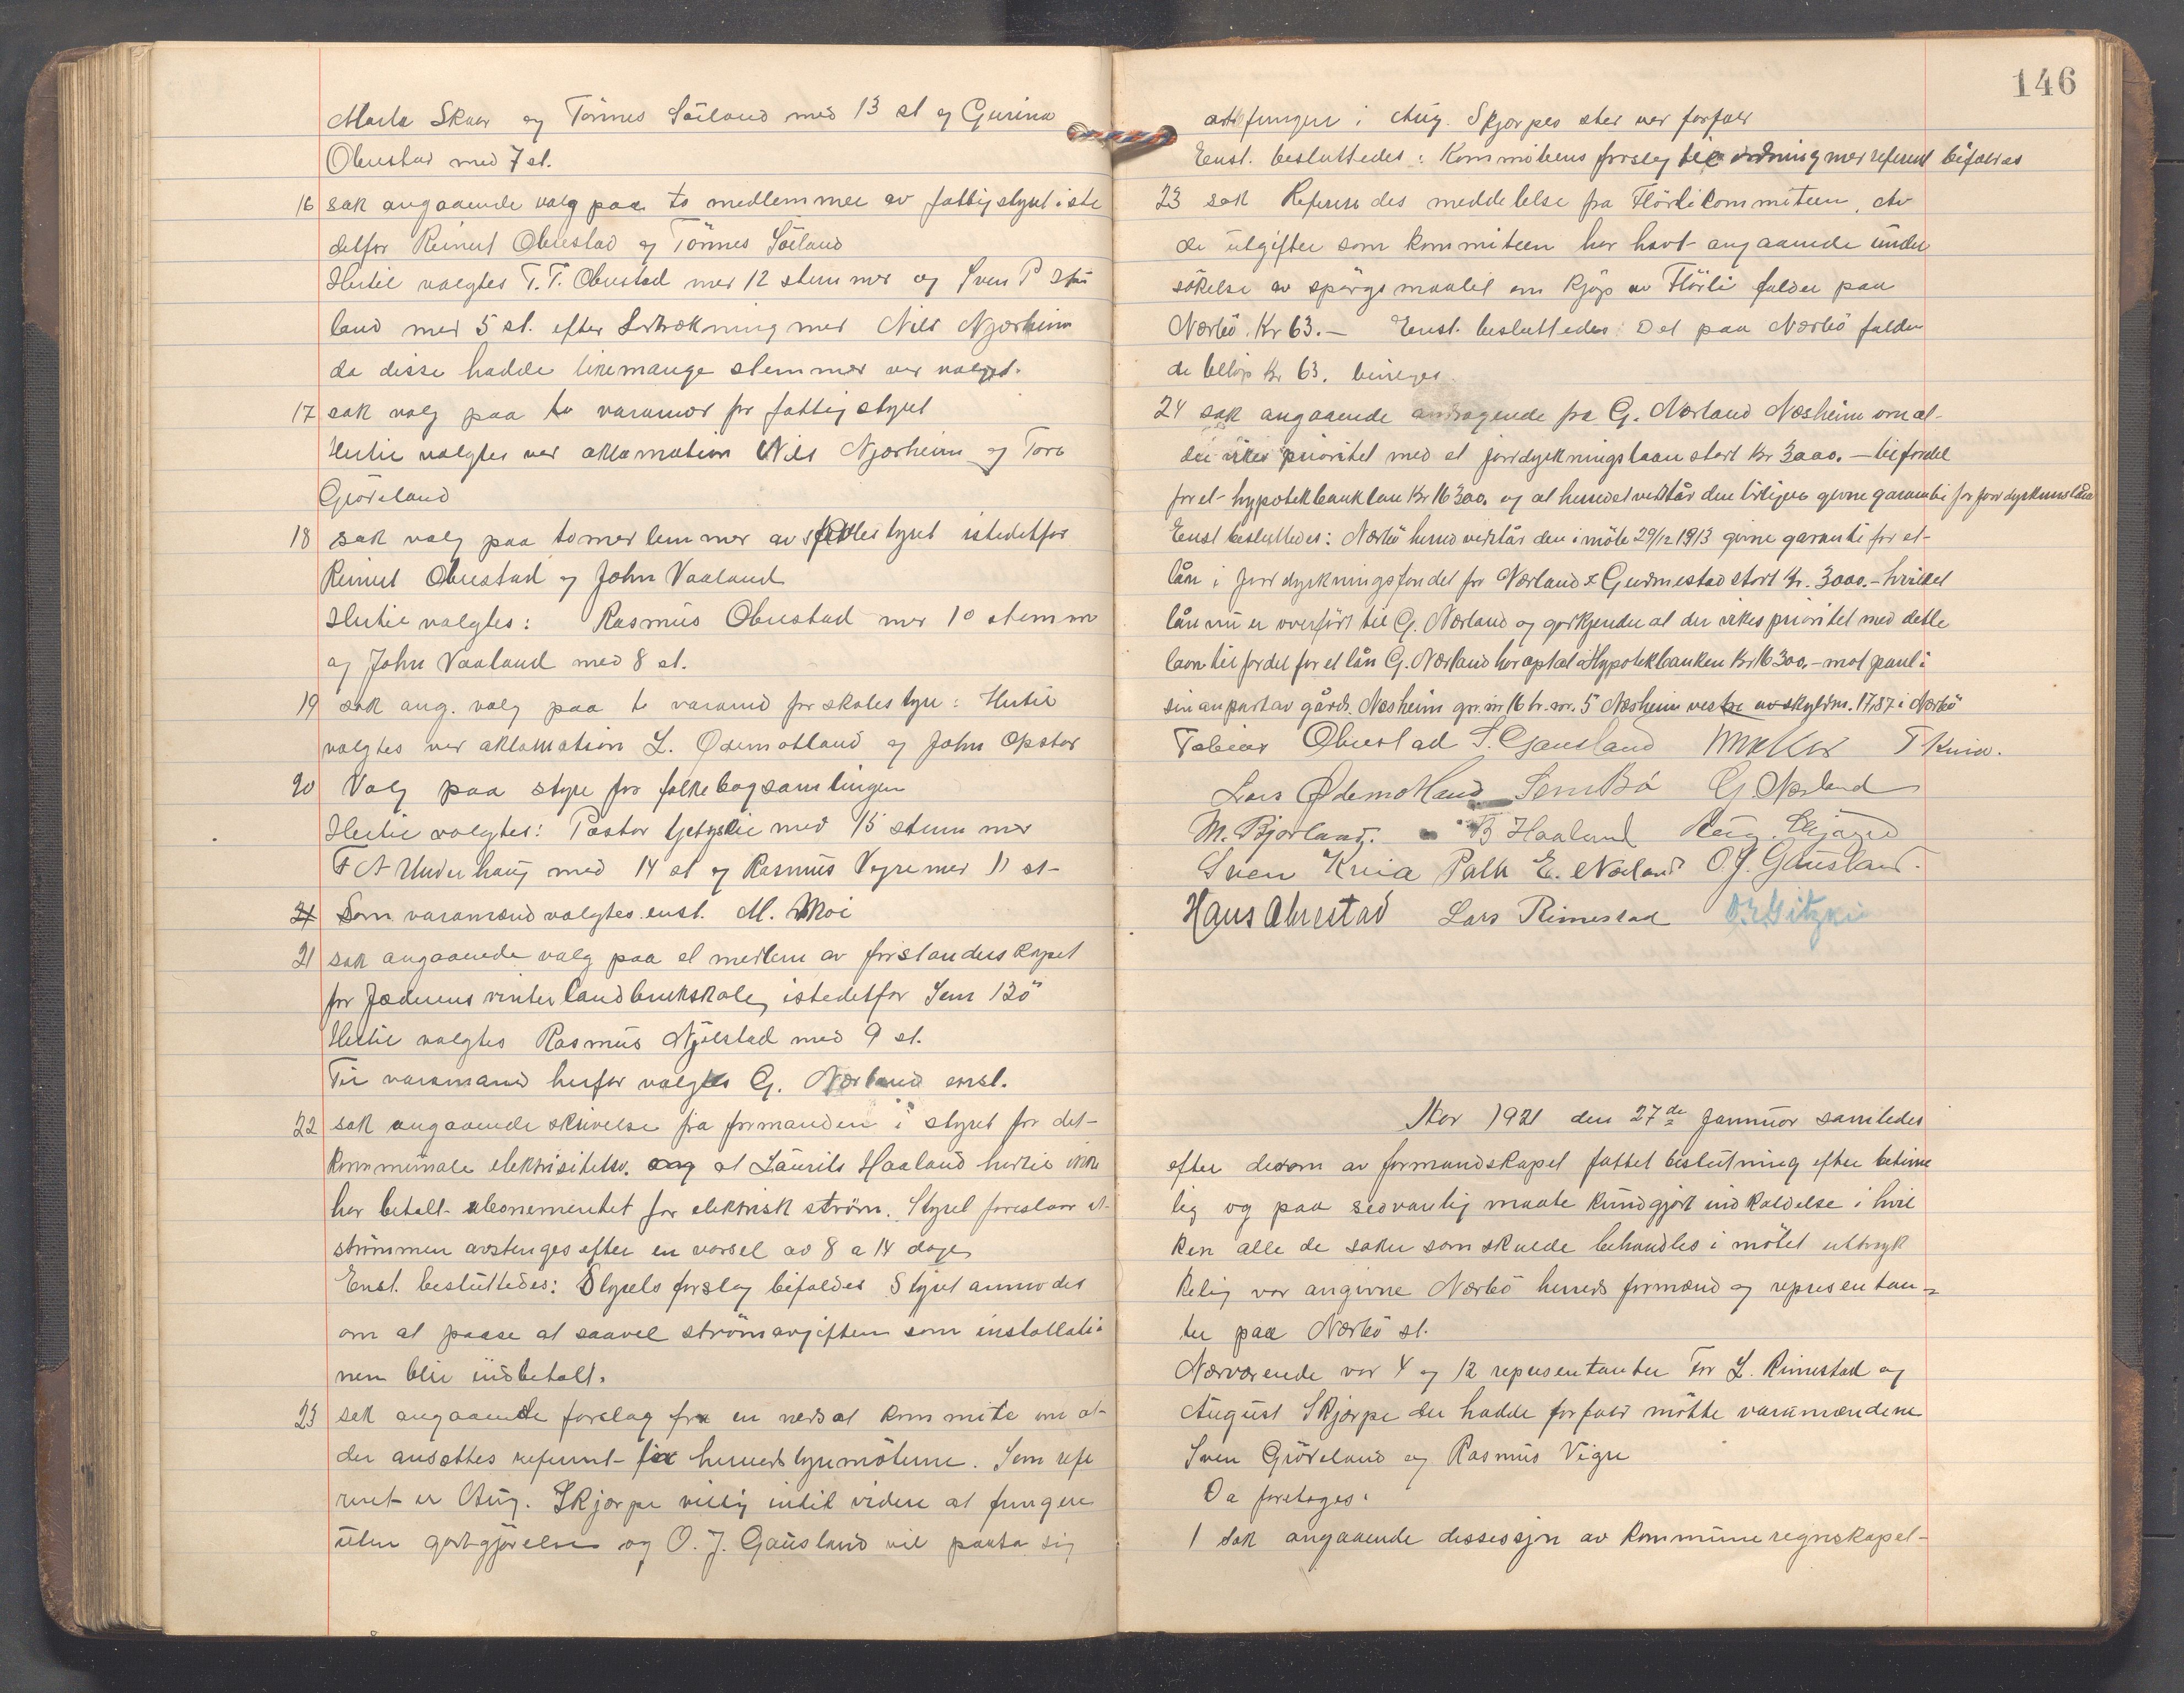 Marta Skaar og Tönnes Söiland med 13 st og Gurina
Obrestad med 7 st.
16 sak angaaende valg paa to medlemmer av fattigstyret iste
detfor Reinert Obrestad og Tönnes Söiland
Hertil valgtes T. T. Obrestad med 12 stemmer og Sven P
land med 5 st. efter Lodtrækning med Nils Njærheim
da disse hadde likemange stemmer ved valget.
17 sak valg paa to varamænd for fattigstyret
Hertil valgtes ved aklamation Nils Njærheim og Tore
Gröteland
18 sak valg paa to medlemmer av skolestyret istedetfor
Reinert Obrestad og John Vaaland
Hertil valgtes: Rasmus Obrestad med 10 stemm
og John Vaaland med 8 st.
19 sak ang. valg paa to varamd for skolestyre: Hertil
valgtes ved aklamation L. Ødemotland og John Opstad
20 Valg paa styre for folkebogsamlingen
Hertil valgtes: Pastor Gjetyskie med 15 stemmer
F A Underhaug med 14 st og Rasmus Vigre med 11 st-
21 Som varamænd valgtes enst. M. Moi
21 sak angaaende valg paa et medlem av forstanderskapet
for Jæderens vinterlandbrukskole, istedetfor Sem Bö
Hertil valgtes Rasmus Njølstad med 9 st.
Til varamand herfor valgtes G. Nærland enst.
22 sak angaaende skrivelse fra formanden i styret for det-
kommunale elektrisitetsv. ang at Laurits Haaland hertil ikke
har betalt abonementet for elektrisk ström. Styret foreslaar at
strömmen avstenges efter en varsel av 8 a 14 dage
Enst. besluttedes: Styrets forslag bifaldes Styret anmodes
om at paase at saavel strömavgiften som installatio
nen blir indbetalt.
23 sak angaaende forslag fra en nedsat kommite om at
der ansættes referent for herredstyremöterne. Som refe
rent er Aug. Skjærpe villig indtil videre at fungere
uten godtgjörelse og O. J. Gausland vil paata sig
146
at fungere i Aug. Skjærpes sted ved forfald
Enst. besluttedes: Kommiteens forslag til ordning med referent bifaldes
23 sak Refererdes meddelelse fra Flörlikommiteen. Av
de utgifter som kommiteen har havt angaaende under
sökelse av spörgsmaalet om kjöp av Flörli falder paa
Nærbö Kr 63.— Enst. besluttedes: Det paa Nærbö falden
de belöp kr 63. bevilges.
24 sak angaaende andragende fra G. Nærland Næsheim om at-
der vikes prioritet med et jorddyrkningslaan stort kr 3000.— til fordel
for et hypotekbanklaan Kr 16300. og at herredet vedstår den tidligere givne garanti for jorddyrkningslånet
Enst besluttedes: Nærbö herred vedstår den i möte 29/12 1913 givne garanti for et-
lån i jorddyrkningsfondet for Nærland & Gudmestad stort Kr. 3000.— hvilket
lån nu er overfört til G. Nærland og godkjender at der vikes prioritet med dette
laan til fordel for et lån G. Nærland har optat i Hypotekbanken Kr 16300.— mot pant i
sin anpart av gård. Næsheim gr.nr 16 br.nr. 5 Næsheim vestre av skyldm. 17,87 i Nærbö
Tobias Obrestad S. Gausland T Kvia.
Lars Ødemotland Sem Bö G. Nærland
M. Bjorland. B Haaland Aug. Skjærpe
Sven Kvia Palle E. Nærland O. J. Gausland.
Hans Obrestad Lars Rimestad
Aar 1921 den 27de Januar samledes
efter dertil av formandskapet fattet beslutning efter betime
lig og paa sedvanlig maate kundgjort indkaldelse i hvil
ken alle de saker som skulde behandles i mötet uttryk
kelig var angivne Nærbö herreds formænd og representan-
ter paa Nærbö st.
Nærværende var 4 og 12 representanter For L. Rimestad og
August Skjærpe der hadde forfald mötte varamændene
Sven Gröteland og Rasmus Vigre
Da foretoges:
1 sak angaaende dessesjon av kommuneregnskapet-